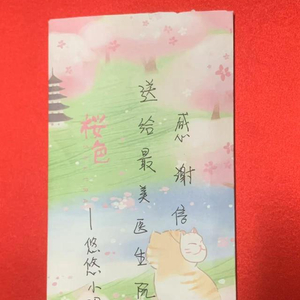 感谢信
送给最美医生
桜色
—悠悠小